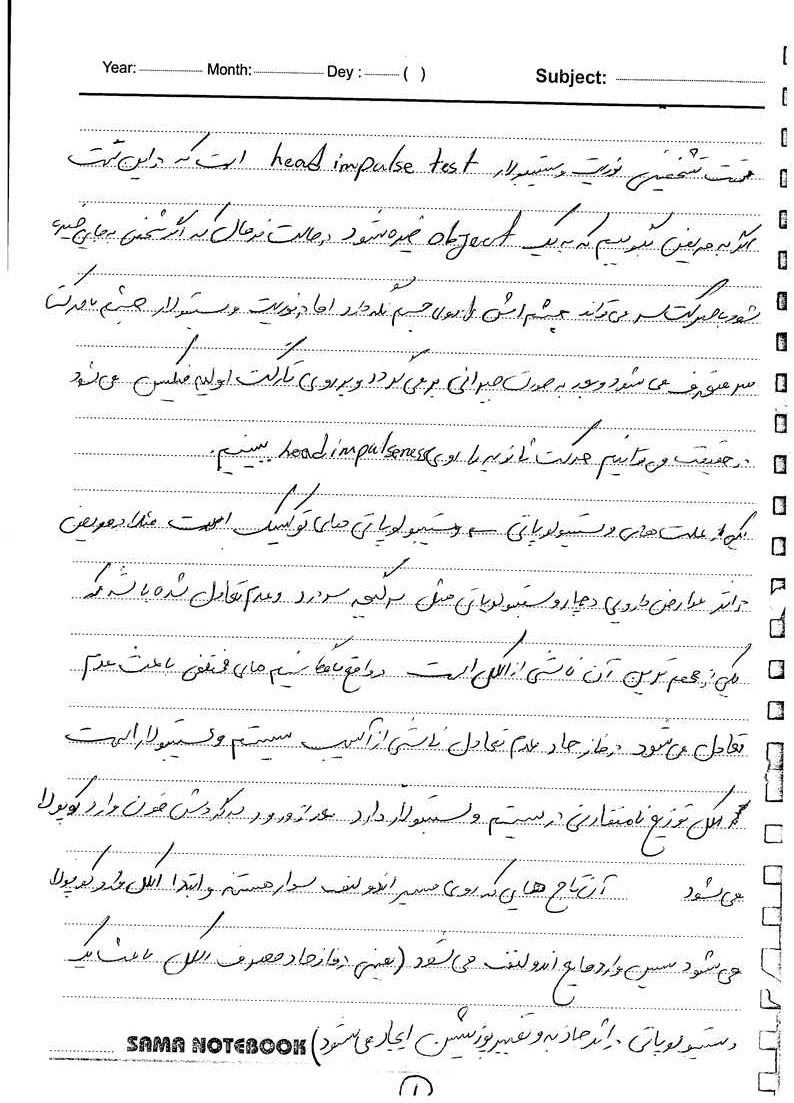 Year: Month: Dey : ( ) Subject:
تست تشخیصی نوریت وستیبولار head impulse test است که در این تست
اگر به مریض بگوییم که به یک object خیره شود در حالت نرمال که اگر شخص به جایی خیره
شود با حرکت سر می‌تواند چشم اش را روی جسم نگه دارد اما در نوریت وستیبولار چشم با حرکت
سر منحرف می شود و بعد به صورت جبرانی برمی گردد و بر روی تارگت اولیه فیکس می شود
در حقیقت می توانیم حرکت ثانویه را روی head impulseness ببینیم.
یکی از علت های وستیبولوپاتی وستیبولوپاتی های توکسیک است مثلا مریض
در اثر عوارض دارویی دچار وستیبولوپاتی مثل سرگیجه سردرد و عدم تعادل شده باشد که
یکی از مهم ترین آن ناشی از الکل است در واقع با مکانیسم های مختلفی باعث عدم
تعادل می شود در فاز حاد عدم تعادل ناشی از آسیب سیستم وستیبولار است
الکل توزیع نامتقارنی در سیستم وستیبولار دارد بعد از ورود به گردش خون وارد کوپولا
می شود آن تاج هایی که روی مسیر اندولنف سوار هستند و ابتدا الکل وارد کوپولا
می شود سپس وارد مایع اندولنف می شود (یعنی در فاز حاد مصرف الکل باعث یک
وستیبولوپاتی در اثر جاذبه و تغییر پوزیشن ایجاد می شود)
SAMA NOTEBOOK
۱